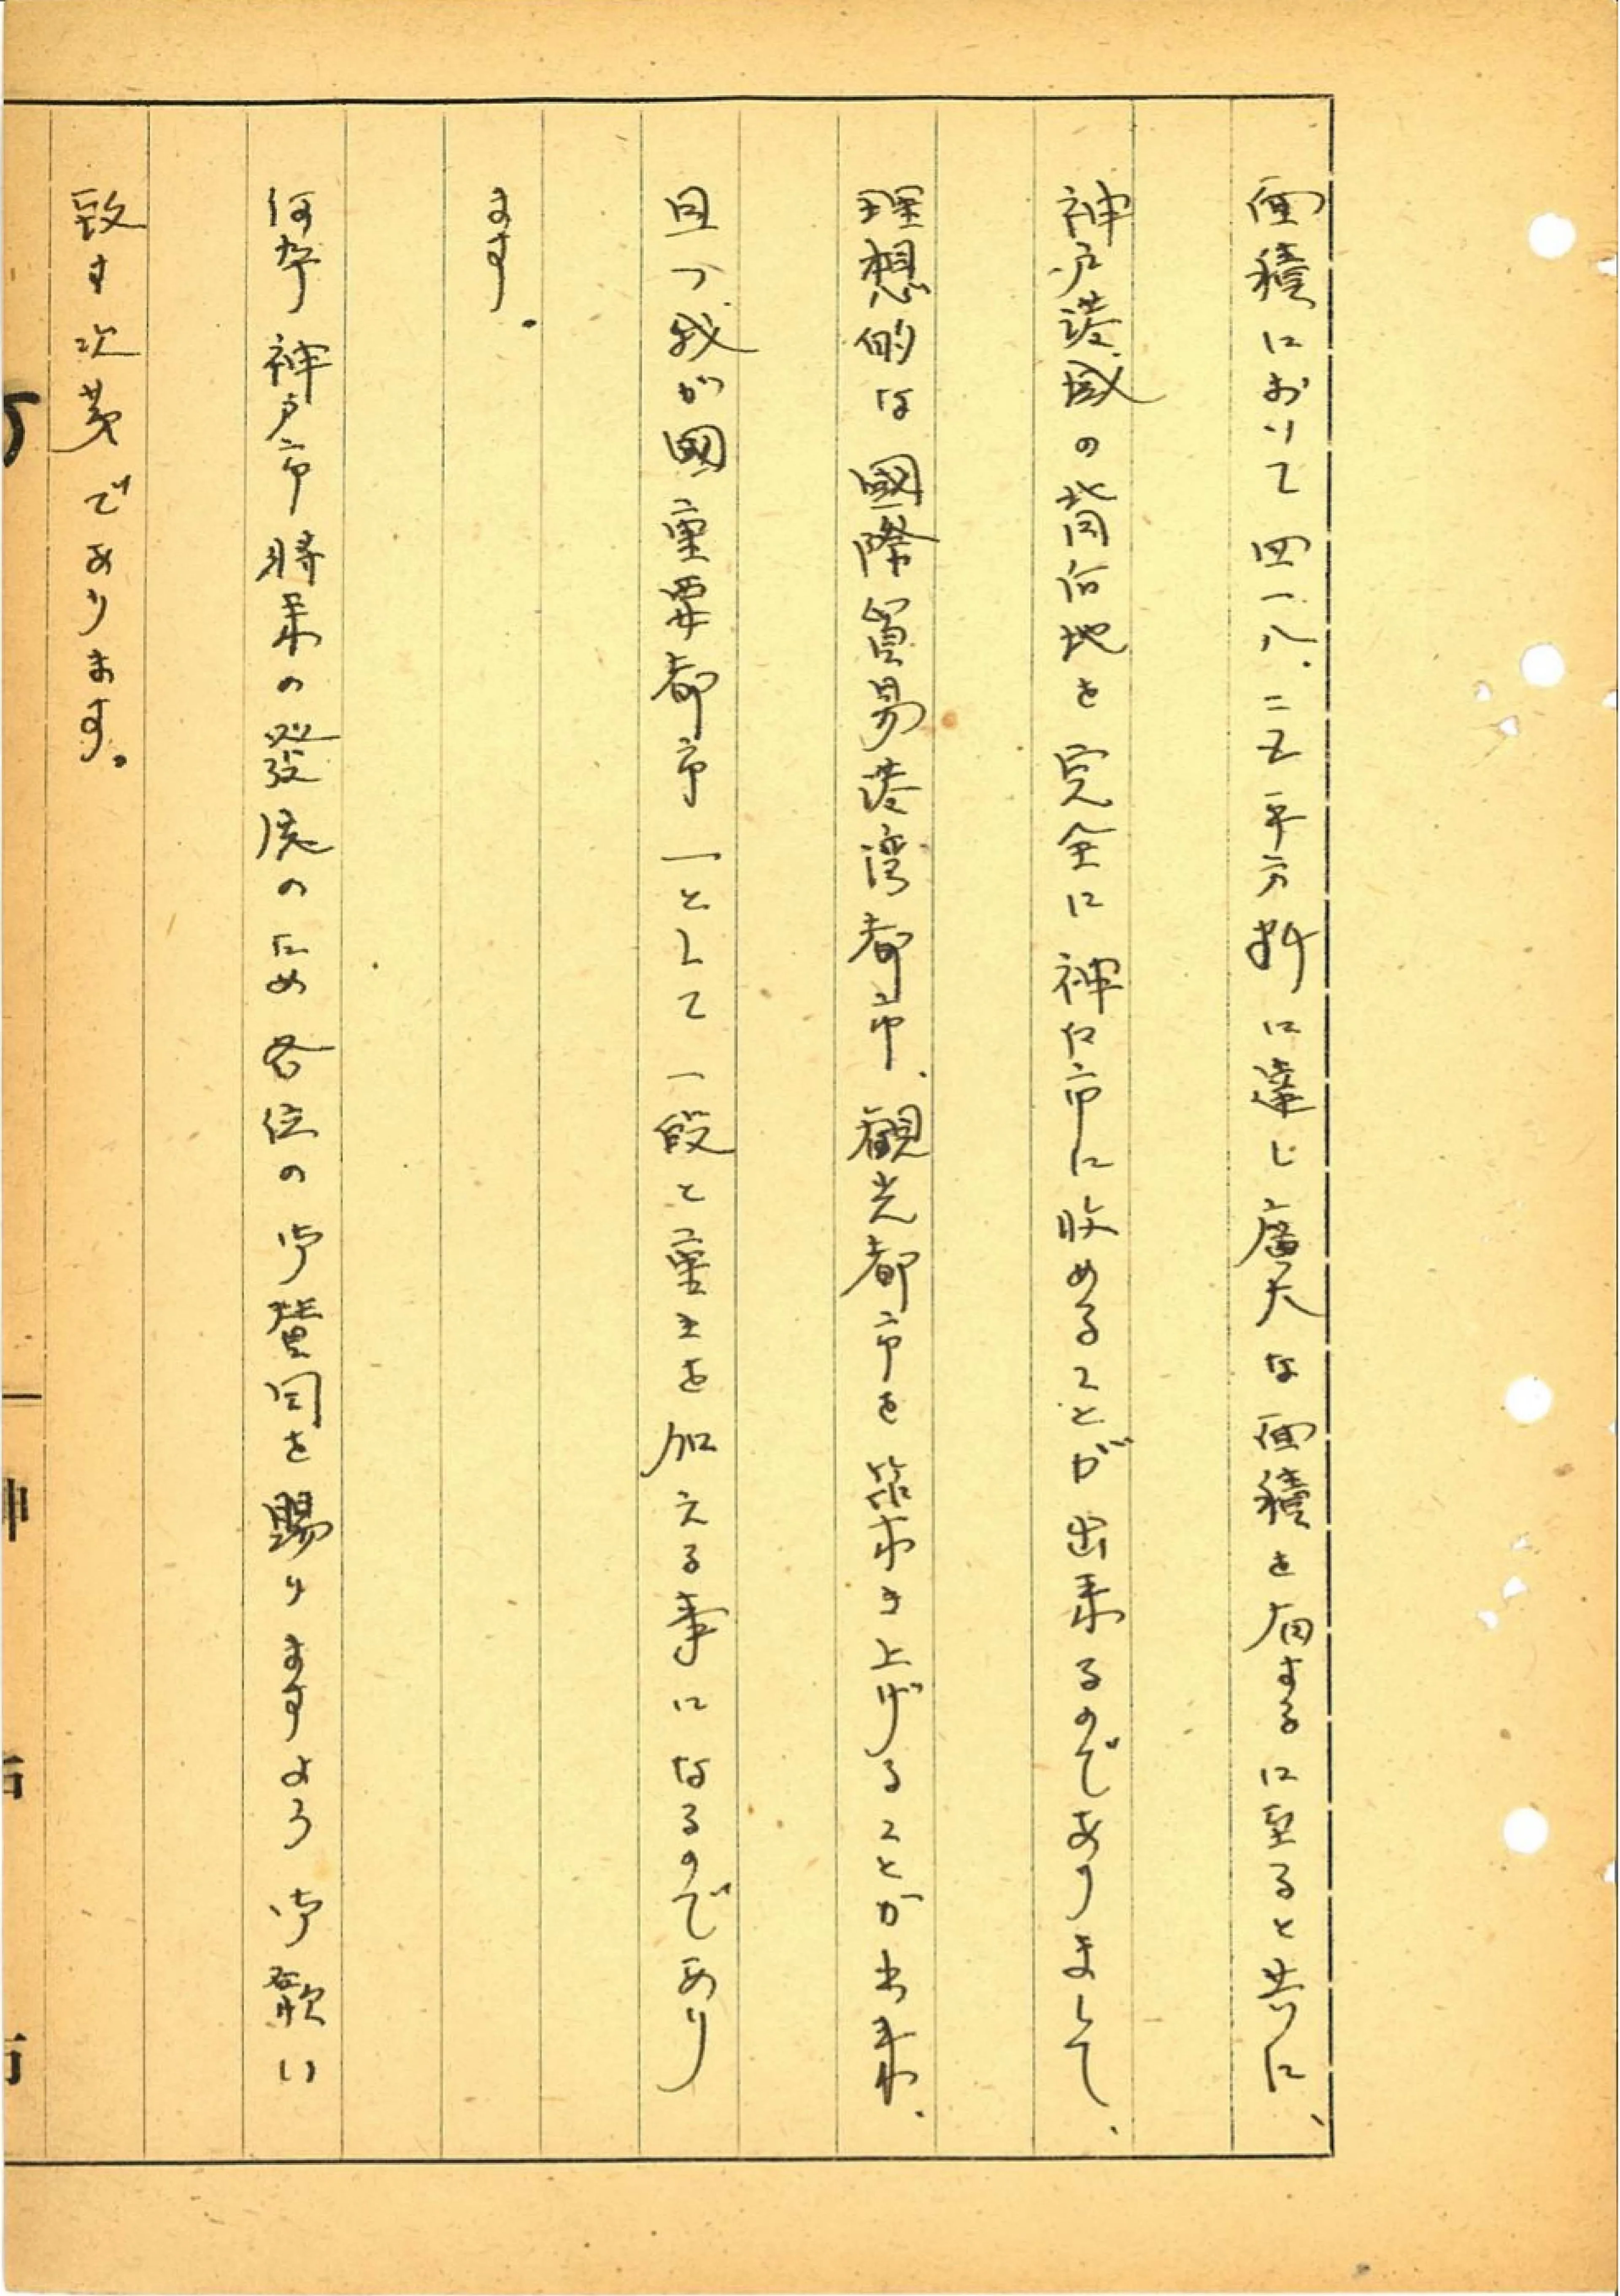 面積において四一八.二五平方粁に達し廣大な面積を有するに至ると共に、
神戸港域の背后地を完全に神戸市に收めることが出来るのでありまして、
理想的な國際貿易港湾都市、観光都市を築き上げることが出来、
且つ我が國重要都市一として一段と重きを加える事になるのであり
ます。
何卒神戸市将来の發展のため各位の御賛同を賜りますよう御歎い
致す次第であります。